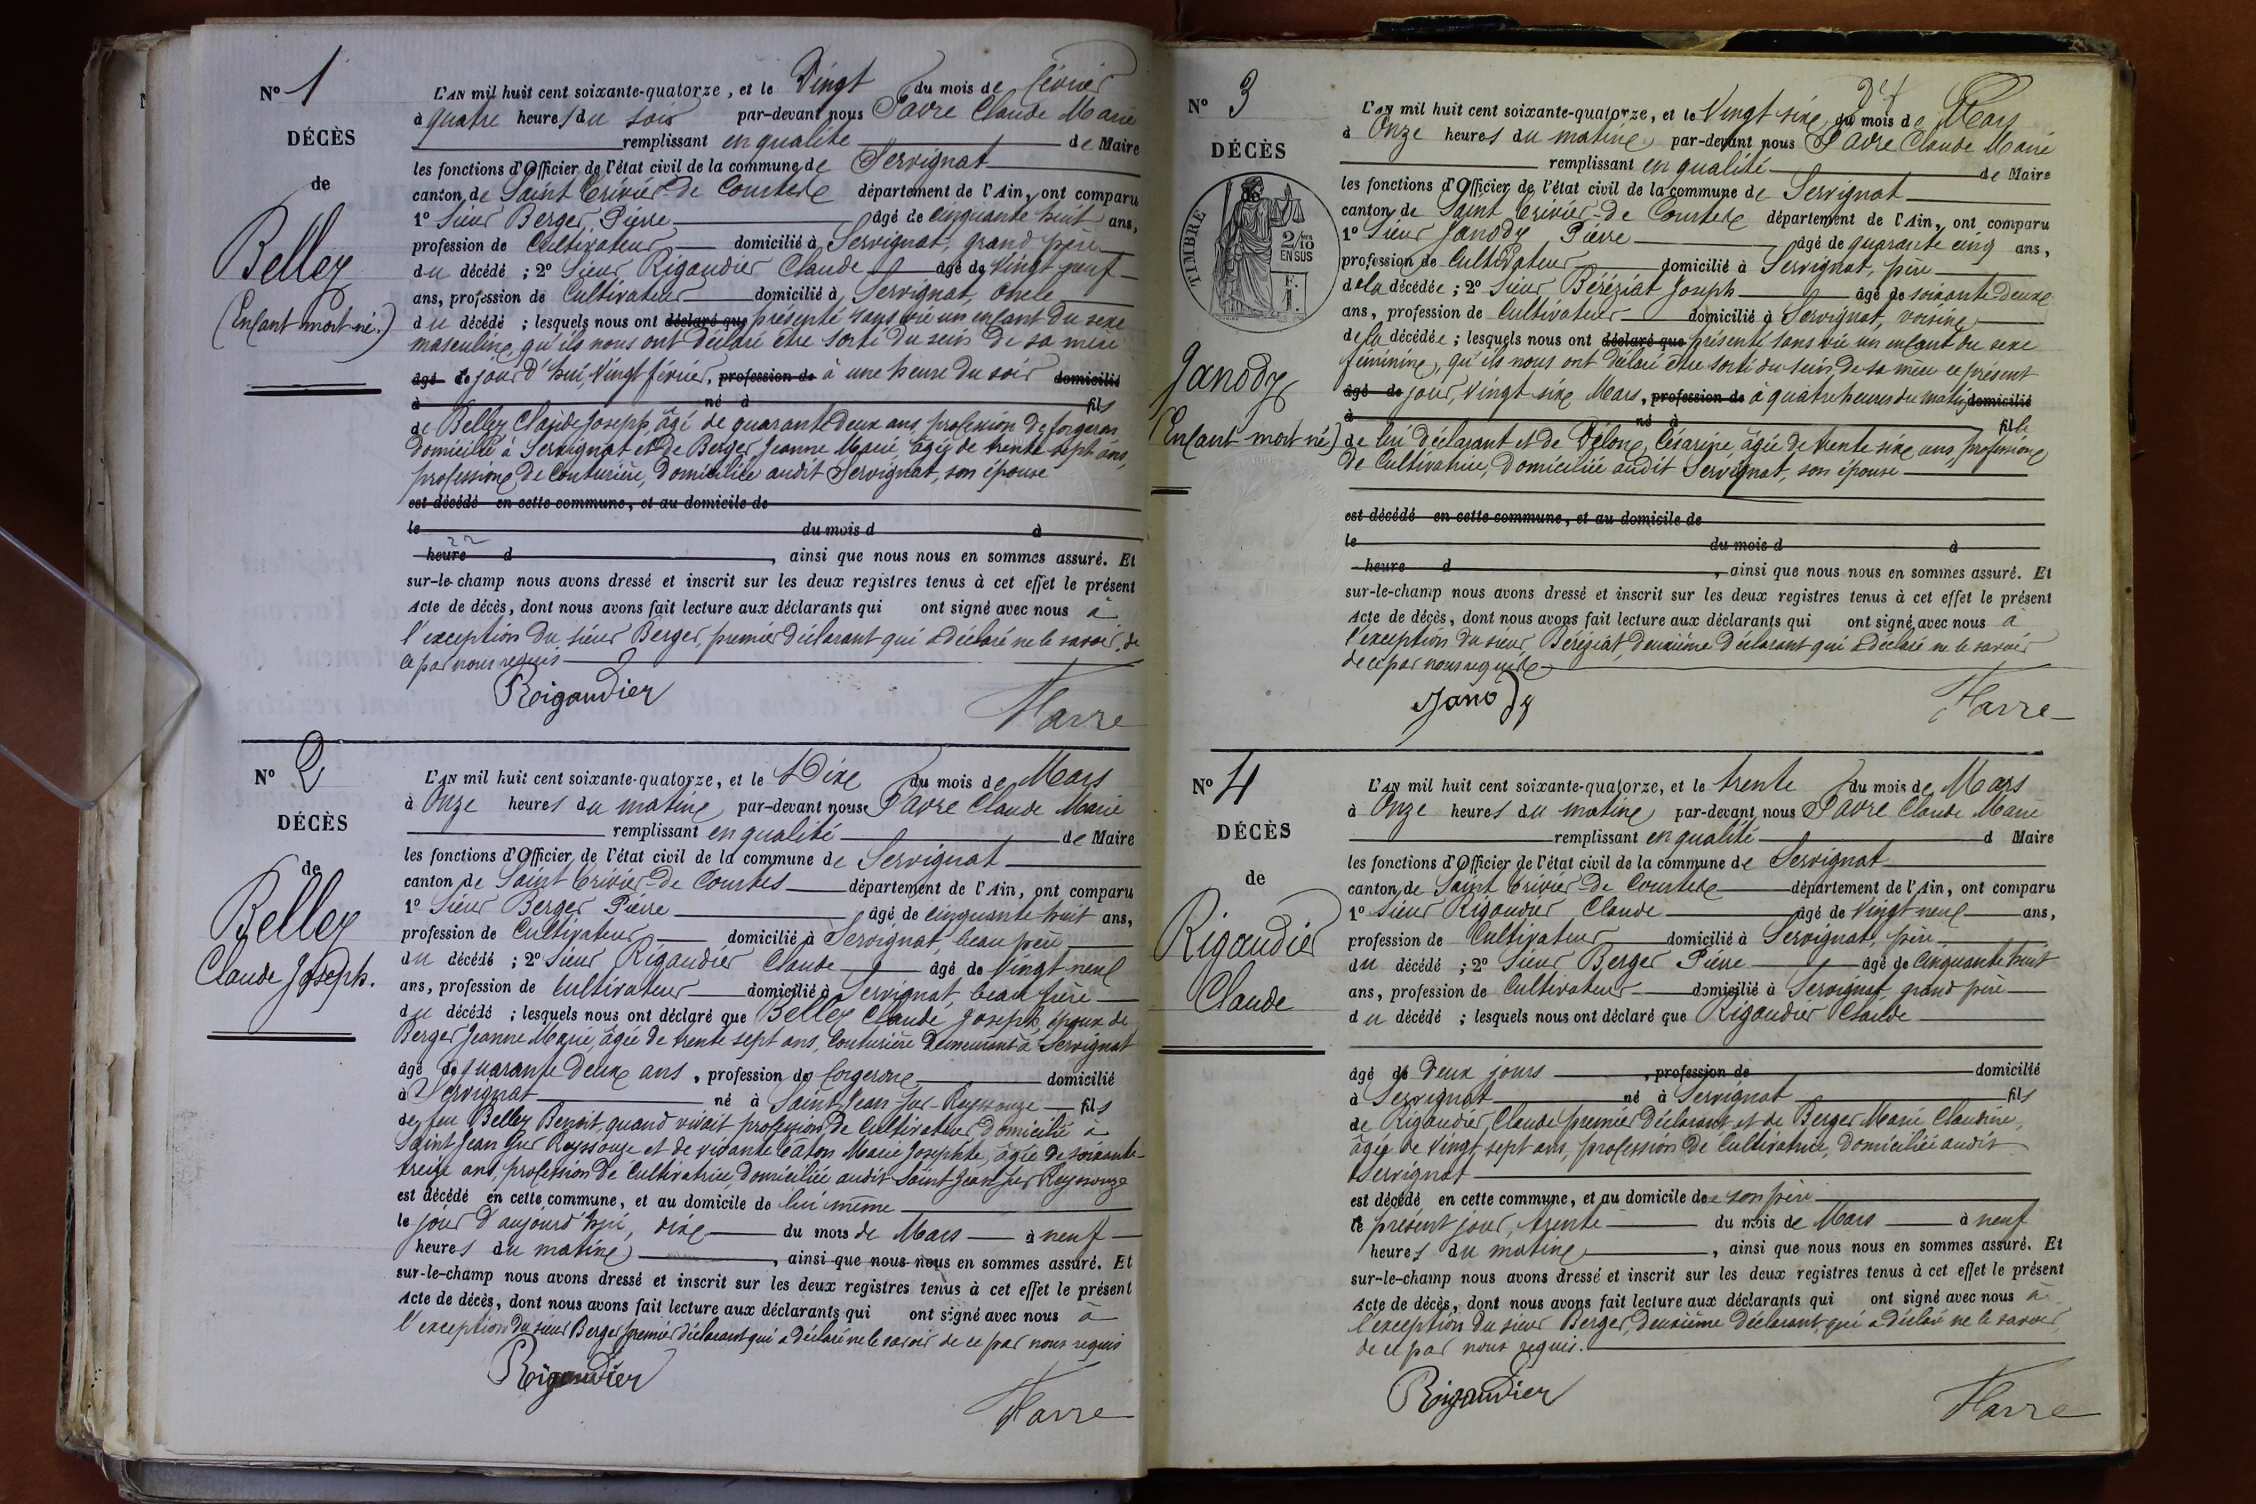 N° 1
DÉCÈS
de
Belley
(Enfant mort-né.)
L'AN mil huit cent soixante-quatorze, et le Vingt du mois de février
à quatre heures du soir par-devant nous Favre Claude Marie
remplissant en qualité de Maire
les fonctions d'Officier de l'état civil de la commune de Servignat
canton de Saint Trivier-de Courtes département de l'Ain, ont comparu
1° Sieur Berger, Pierre âgé de cinquante huit ans,
profession de Cultivateur domicilié à Servignat, grand père
du décédé ; 2° Sieur Rigaudier Claude âgé de Vingt neuf
ans, profession de Cultivateur domicilié à Servignat, oncle
du décédé ; lesquels nous ont déclaré que présenté sans vie un enfant du sexe
masculin, qu'ils nous ont déclaré être sorti du sein de sa mère
âgé de jour d'hui, Vingt février, profession de à une heure du soir domicilié
à né à fils
de Belley Claude Joseph, âgé de quarante deux ans, profession de forgeron
domicilié à Servignat et de Berger Jeanne Marie, âgée de trente sept ans,
profession de Couturière, domiciliée audit Servignat, son épouse
est décédé en cette commune, et au domicile de
le du mois d à
22
heure d , ainsi que nous nous en sommes assuré. Et
sur-le-champ nous avons dressé et inscrit sur les deux registres tenus à cet effet le présent
Acte de décès, dont nous avons fait lecture aux déclarants qui ont signé avec nous à
l'exception du sieur Berger, premier déclarant qui a déclaré ne le savoir, de
ce par nous requis
Rigaudier
Favre
N° 2
DÉCÈS
de
Belley
Claude Joseph.
L'AN mil huit cent soixante-quatorze, et le Dix du mois de Mars
à Onze heures du matin par-devant nous Favre Claude Marie
remplissant en qualité de Maire
les fonctions d'Officier de l'état civil de la commune de Servignat
canton de Saint Trivier-de Courtes département de l'Ain, ont comparu
1° Sieur Berger Pierre âgé de cinquante huit ans,
profession de Cultivateur domicilié à Servignat, beau père
du décédé ; 2° Sieur Rigaudier Claude âgé de Vingt neuf
ans, profession de Cultivateur domicilié à Servignat, beau frère
du décédé ; lesquels nous ont déclaré que Belley Claude Joseph, époux de
Berger Jeanne Marie, âgée de trente sept ans, Couturière demeurant à Servignat
âgé de quarante deux ans, profession de forgeron domicilié
à Servignat né à Saint Jean sur Reyssouze fils
de feu Belley Benoit, quand vivait profession de Cultivateur domicilié à
Saint Jean sur Reyssouze et de vivante Câton Marie Josephte, âgée de soixante
treize ans, profession de Cultivatrice, domiciliée audit Saint Jean sur Reyssouze
est décédé en cette commune, et au domicile de lui même
le jour d'aujourd'hui, dix du mois de Mars à neuf
heures du matin, ainsi que nous nous en sommes assuré. Et
sur-le-champ nous avons dressé et inscrit sur les deux registres tenus à cet effet le présent
Acte de décès, dont nous avons fait lecture aux déclarants qui ont signé avec nous à
l'exception du sieur Berger, premier déclarant qui a déclaré ne le savoir de ce par nous requis
Rigaudier
Favre
N° 3
DÉCÈS
de
TIMBRE
2/10 EN SUS
F. 1.
Janody
(Enfant mort né)
L'AN mil huit cent soixante-quatorze, et le Vingt six du mois de Mars
à Onze heures du matin par-devant nous Favre Claude Marie
remplissant en qualité de Maire
les fonctions d'Officier de l'état civil de la commune de Servignat
canton de Saint Trivier-de Courtes département de l'Ain, ont comparu
1° Sieur Janody Pierre âgé de quarante cinq ans,
profession de Cultivateur domicilié à Servignat, père
de la décédée ; 2° Sieur Béréziat Joseph âgé de soixante deux
ans, profession de Cultivateur domicilié à Servignat, voisin
de la décédée ; lesquels nous ont déclaré que présenté sans vie un enfant du sexe
féminin, qu'ils nous ont déclaré être sorti du sein de sa mère ce présent
âgé de jour, Vingt six Mars, profession de à quatre heures du matin domicilié
à né à fille
de lui déclarant et de Délong Césarine, âgée de trente six ans, profession
de Cultivatrice, domiciliée audit Servignat, son épouse
est décédé en cette commune, et au domicile de
le du mois d à
heure d , ainsi que nous nous en sommes assuré. Et
sur-le-champ nous avons dressé et inscrit sur les deux registres tenus à cet effet le présent
Acte de décès, dont nous avons fait lecture aux déclarants qui ont signé avec nous à
l'exception du sieur Béréziat, deuxième déclarant qui a déclaré ne le savoir
de ce par nous requis
Janody
Favre
N° 4
DÉCÈS
de
Rigaudier
Claude
L'AN mil huit cent soixante-quatorze, et le trente du mois de Mars
à Onze heures du matin par-devant nous Favre Claude Marie
remplissant en qualité d Maire
les fonctions d'Officier de l'état civil de la commune de Servignat
canton de Saint Trivier de Courtes département de l'Ain, ont comparu
1° Sieur Rigaudier Claude âgé de Vingt neuf ans,
profession de Cultivateur domicilié à Servignat, père
du décédé ; 2° Sieur Berger Pierre âgé de Cinquante huit
ans, profession de Cultivateur domicilié à Servignat, grand père
du décédé ; lesquels nous ont déclaré que Rigaudier Claude
âgé de Deux jours, profession de domicilié
à Servignat né à Servignat fils
de Rigaudier, Claude premier déclarant, et de Berger Marie Claudine,
âgée de Vingt sept ans, profession de Cultivatrice, domiciliée audit
Servignat
est décédé en cette commune, et au domicile de son père
le présent jour, trente du mois de Mars à neuf
heures du matin, ainsi que nous nous en sommes assuré. Et
sur-le-champ nous avons dressé et inscrit sur les deux registres tenus à cet effet le présent
Acte de décès, dont nous avons fait lecture aux déclarants qui ont signé avec nous à
l'exception du sieur Berger, deuxième déclarant, qui a déclaré ne le savoir,
de ce par nous requis.
Rigaudier
Favre